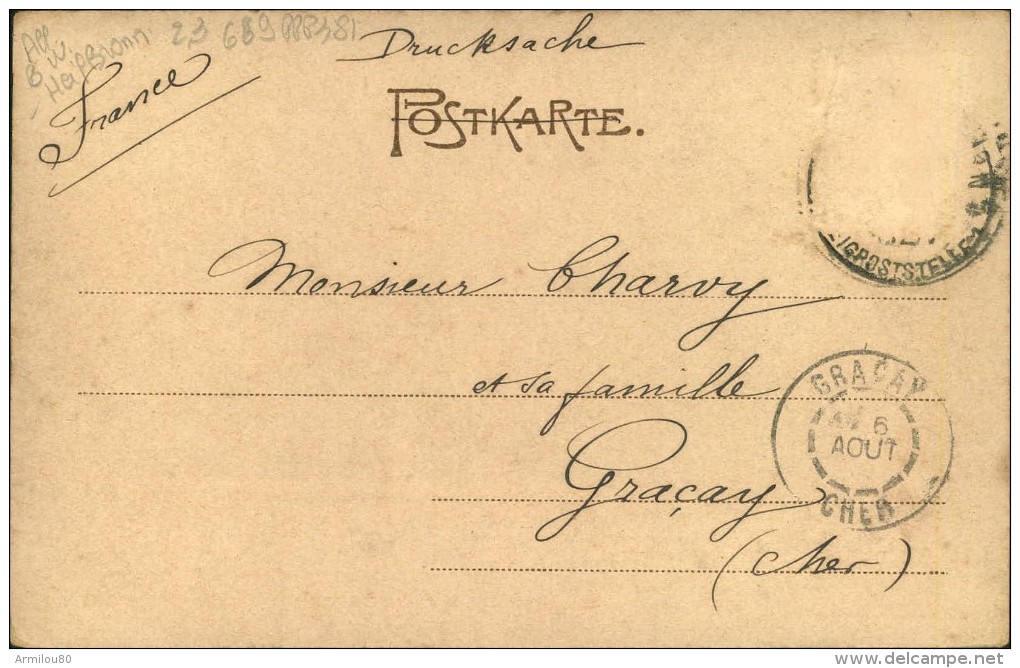 All
B W
Heilbronn
23 689
Drucksache
France
POSTKARTE.
ZWEIGPOSTSTELLE
Monsieur Charvy
et sa famille
Graçay
(Cher)
GRAÇAY
6
AOUT
CHER
Armilou80
delcampe.net